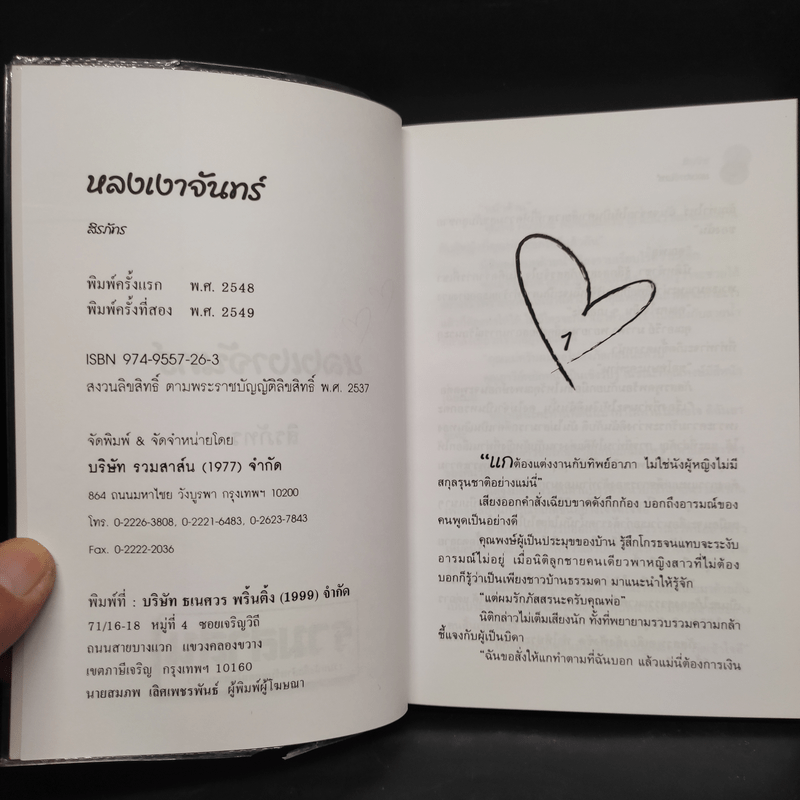 หลงเงาจันทร์
สิรภัทร
พิมพ์ครั้งแรก พ.ศ. 2548
พิมพ์ครั้งที่สอง พ.ศ. 2549
ISBN 974-9557-26-3
สงวนลิขสิทธิ์ ตามพระราชบัญญัติลิขสิทธิ์ พ.ศ. 2537
จัดพิมพ์ & จัดจำหน่ายโดย
บริษัท รวมสาส์น (1977) จำกัด
864 ถนนมหาไชย วังบูรพา กรุงเทพฯ 10200
โทร. 0-2226-3808, 0-2221-6483, 0-2623-7843
Fax. 0-2222-2036
พิมพ์ที่ : บริษัท ธเนศวร พริ้นติ้ง (1999) จำกัด
71/16-18 หมู่ที่ 4 ซอยเจริญวิถี
ถนนสายบางแวก แขวงคลองขวาง
เขตภาษีเจริญ กรุงเทพฯ 10160
นายสมภพ เลิศเพชรพันธ์ ผู้พิมพ์ผู้โฆษณา
1
“แกต้องแต่งงานกับทิพย์อาภา ไม่ใช่นังผู้หญิงไม่มี
สกุลรุนชาติอย่างแม่นี่”
เสียงออกคำสั่งเฉียบขาดดังกึกก้อง บอกถึงอารมณ์ของ
คนพูดเป็นอย่างดี
คุณพงษ์ผู้เป็นประมุขของบ้าน รู้สึกโกรธจนแทบจะระงับ
อารมณ์ไม่อยู่ เมื่อนิติลูกชายคนเดียวพาหญิงสาวที่ไม่ต้อง
บอกก็รู้ว่าเป็นเพียงชาวบ้านธรรมดา มาแนะนำให้รู้จัก
“แต่ผมรักภัสสรนะครับคุณพ่อ”
นิติกล่าวไม่เต็มเสียงนัก ทั้งที่พยายามรวบรวมความกล้า
ชี้แจงกับผู้เป็นบิดา
“ฉันขอสั่งให้แกทำตามที่ฉันบอก แล้วแม่นี่ต้องการเงิน